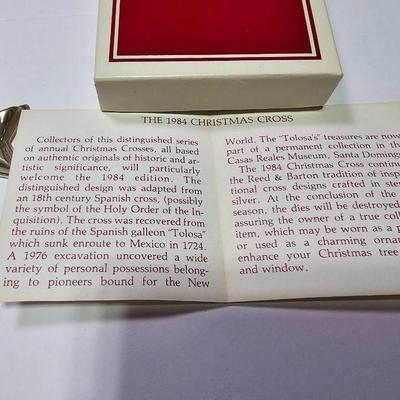 THE 1984 CHRISTMAS CROSS
Collectors of this distinguished series
of annual Christmas Crosses, all based
on authentic originals of historic and ar-
tistic significance, will particularly
welcome the 1984 edition. The
distinguished design was adapted from
an 18th century Spanish cross, (possibly
the symbol of the Holy Order of the In-
quisition). The cross was recovered from
the ruins of the Spanish galleon "Tolosa"
which sunk enroute to Mexico in 1724.
A 1976 excavation uncovered a wide
variety of personal possessions belong-
ing to pioneers bound for the New
World. The "Tolosa's" treasures are now
part of a permanent collection in the
Casas Reales Museum, Santa Domingo
The 1984 Christmas Cross continu
the Reed & Barton tradition of inspi
tional cross designs crafted in ster
silver. At the conclusion of the
season, the dies will be destroyed
assuring the owner of a true coll
item, which may be worn as a p
or used as a charming orna
enhance your Christmas tree
and window.